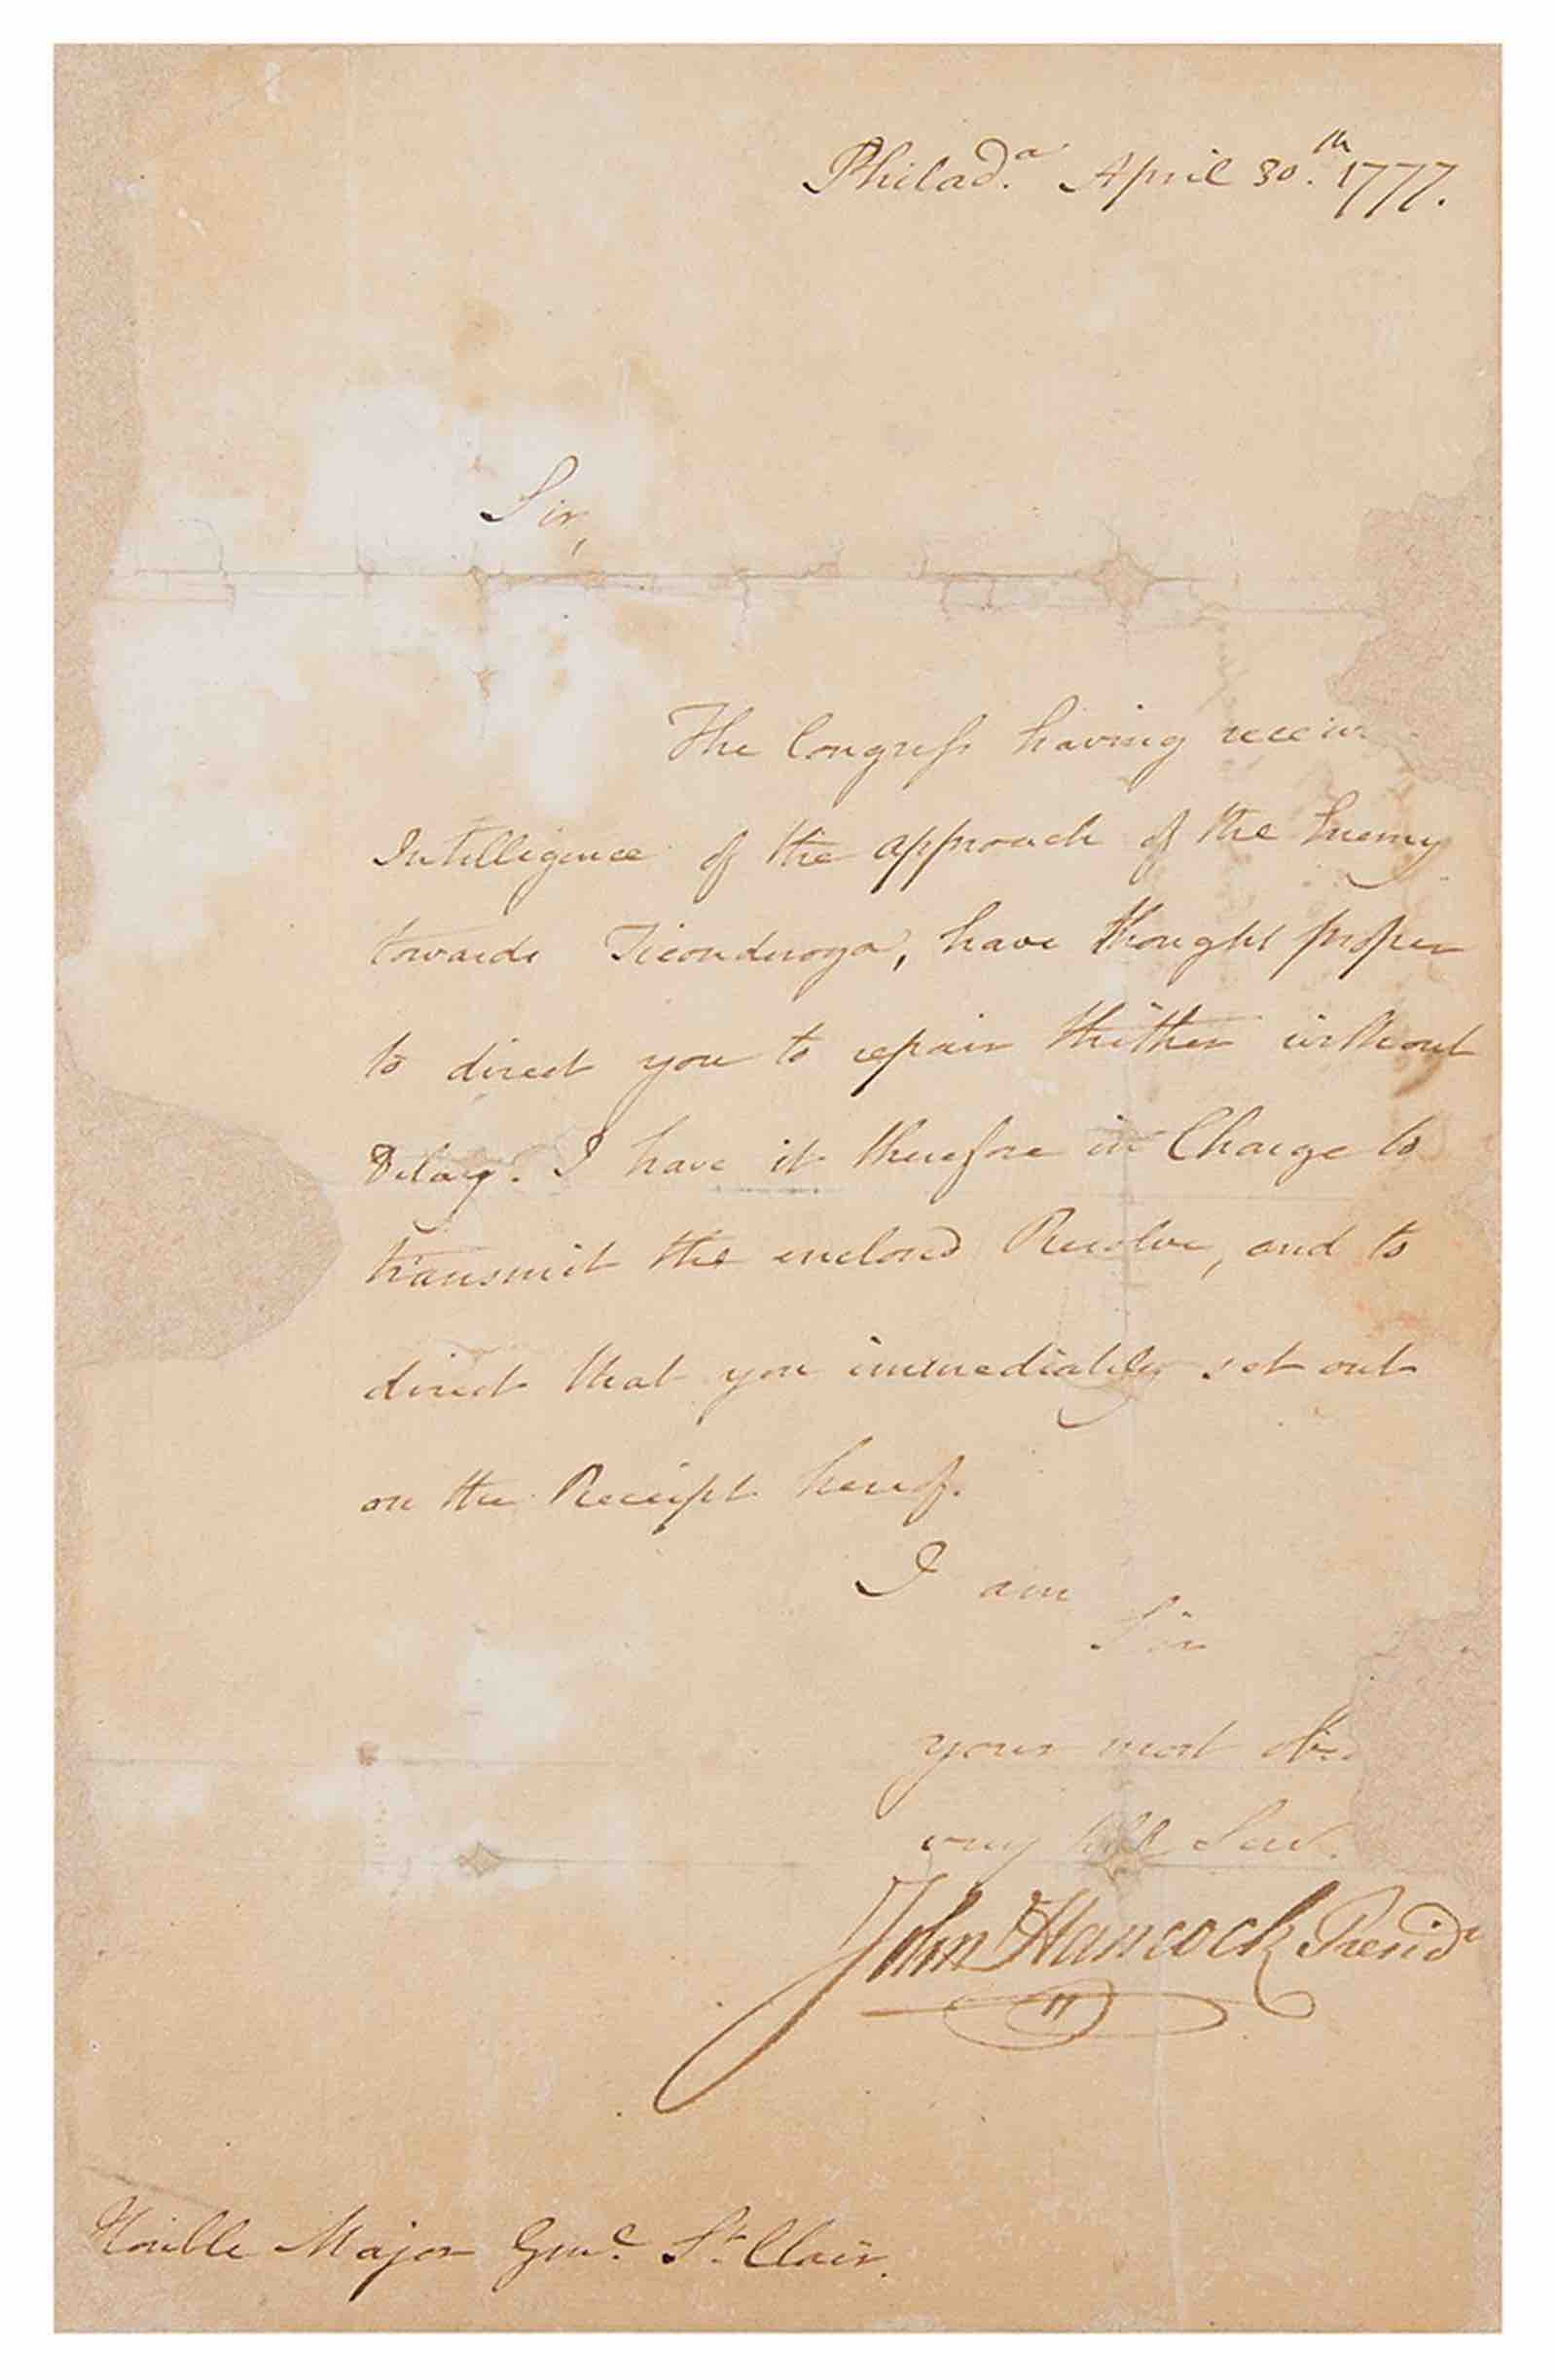 Philad.a April 30.th 1777.
Sir,
The Congress having receiv
Intelligence of the approach of the Enemy
towards Ticonderoga, have thought proper
to direct you to repair thither without
Delay. I have it therefore in Charge to
transmit the enclosed Resolve, and to
direct that you immediately set out
on the Receipt hereof.
I am
Sir
your most obed
very hble Serv.
John Hancock Presidt
Honble Major Genl. St. Clair.